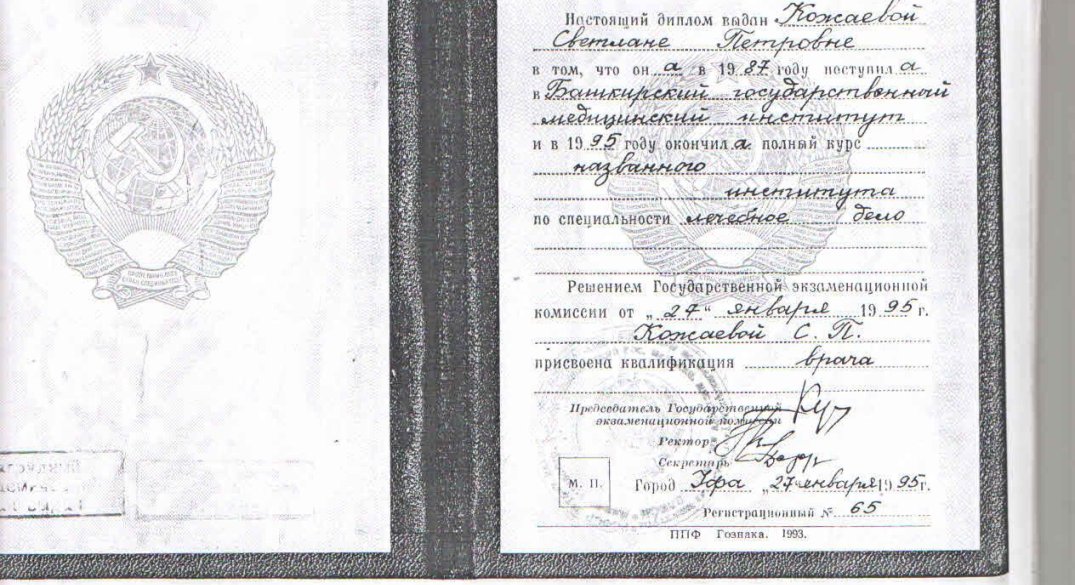 Настоящий диплом выдан Кожаевой
Светлане Петровне
в том, что он а в 19 87 году поступил а
в Башкирский государственный
медицинский институт
и в 19 95 году окончил а полный курс
названного
института
по специальности лечебное дело
Решением Государственной экзаменационной
комиссии от „ 27 “ января 19 95 г.
Кожаевой С. П.
присвоена квалификация врача
Председатель Государственной
экзаменационной комиссии
Ректор
Секретарь
М. П.
Город Уфа „ 27 января 19 95 г.
Регистрационный № 65
ППФ Гознака. 1993.